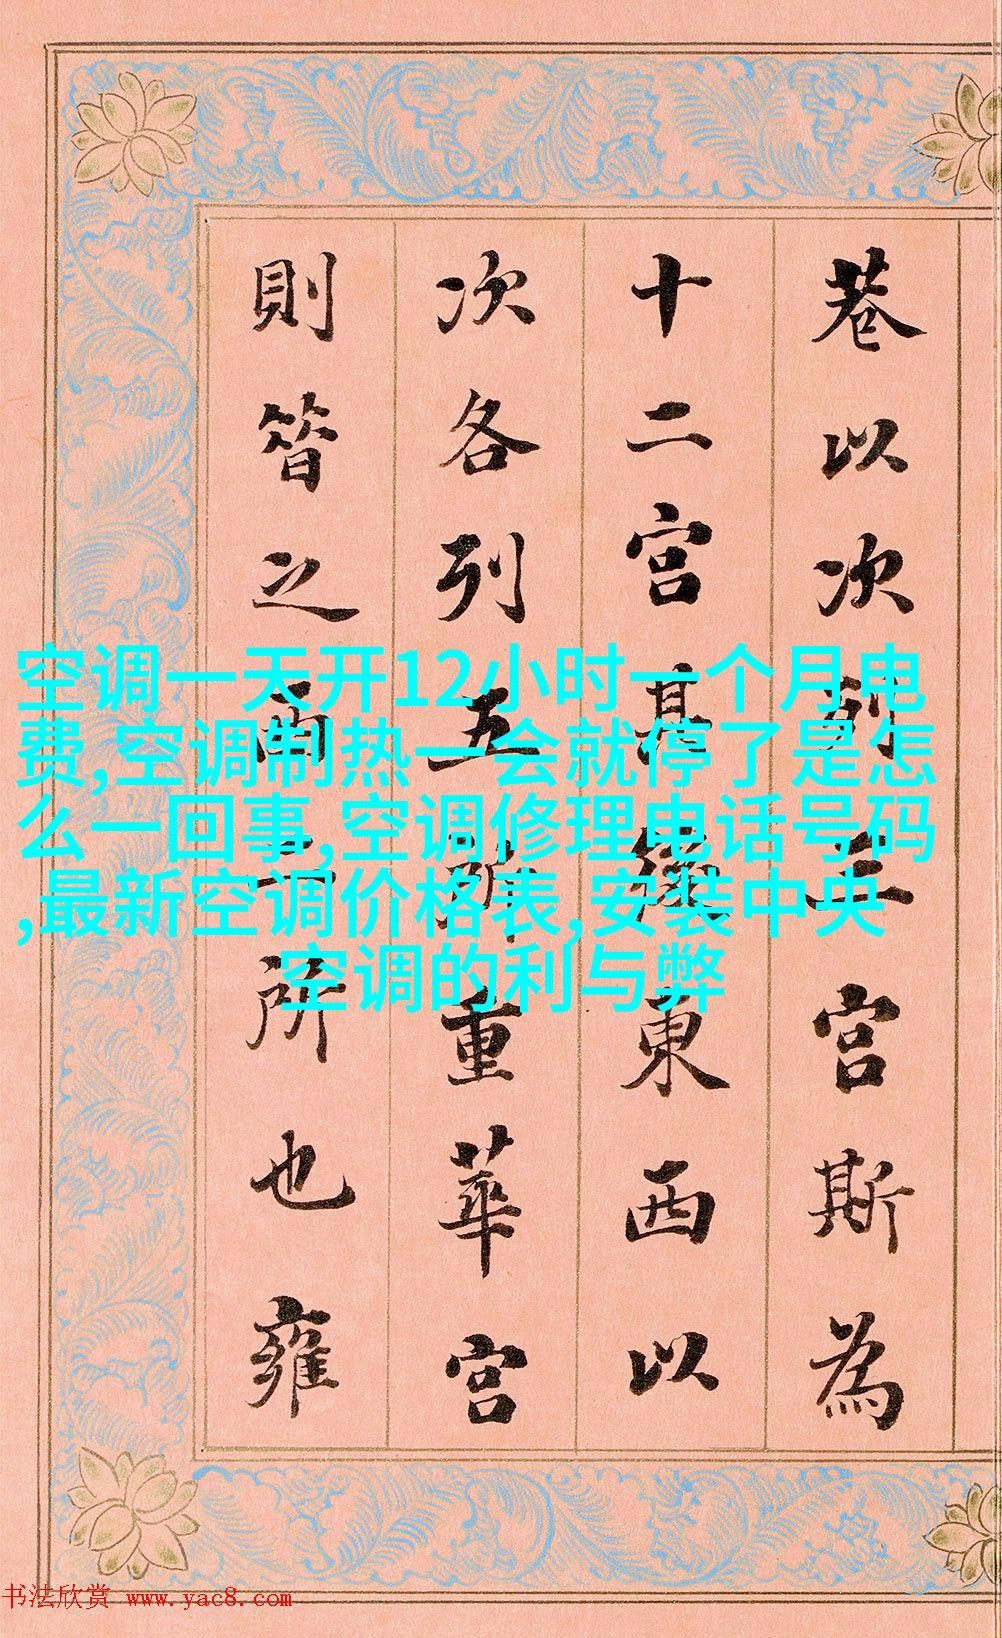 巷以次列三宮斯為
十二宮其後東西以
次各列五所重華宮
則之所也雍
空调一天开12小时一个月电
费,空调制热一会就停了是怎
么一回事,空调修理电话号码
,最新空调价格表,安装中央
空调的利与弊
书法欣赏 www.yac8.com